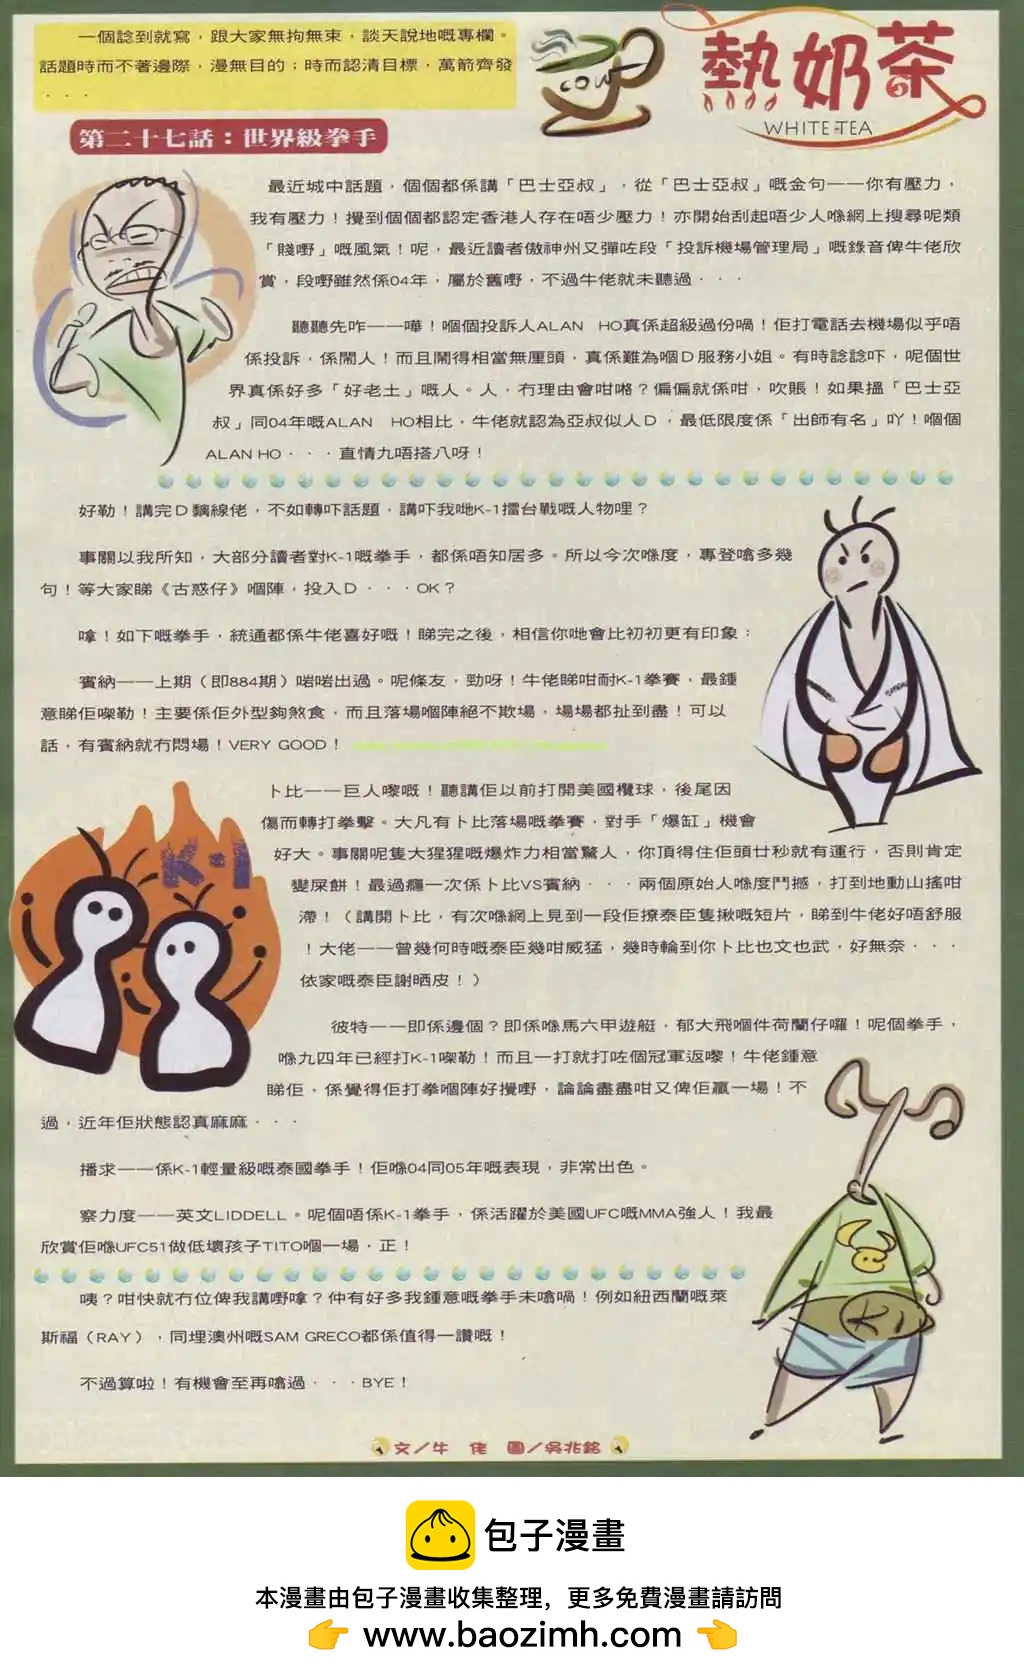 一個諗到就寫，跟大家無拘無束，談天說地嘅專欄。
話題時而不著邊際，漫無目的；時而認清目標，萬箭齊發
．．．
COW
熱奶茶
WHITE TEA
第二十七話：世界級拳手
最近城中話題，個個都係講「巴士亞叔」，從「巴士亞叔」嘅金句——你有壓力，
我有壓力！攪到個個都認定香港人存在唔少壓力！亦開始刮起唔少人喺網上搜尋呢類
「賤嘢」嘅風氣！呢，最近讀者傲神州又彈咗段「投訴機場管理局」嘅錄音俾牛佬欣
賞，段嘢雖然係04年，屬於舊嘢，不過牛佬就未聽過．．．
聽聽先咋——嘩！嗰個投訴人ALAN HO真係超級過份喎！佢打電話去機場似乎唔
係投訴，係鬧人！而且鬧得相當無厘頭，真係難為嗰D服務小姐。有時諗諗吓，呢個世
界真係好多「好老土」嘅人。人，冇理由會咁嘅？偏偏就係咁，吹脹！如果搵「巴士亞
叔」同04年嘅ALAN HO相比，牛佬就認為亞叔似人D，最低限度係「出師有名」吖！嗰個
ALAN HO．．．直情九唔搭八呀！
好勒！講完D黐線佬，不如轉吓話題，講吓我哋K-1擂台戰嘅人物哩？
事關以我所知，大部分讀者對K-1嘅拳手，都係唔知居多。所以今次喺度，專登噏多幾
句！等大家睇《古惑仔》嗰陣，投入D．．．OK？
嗱！如下嘅拳手，統通都係牛佬喜好嘅！睇完之後，相信你哋會比初初更有印象：
賓納——上期（即884期）啱啱出過。呢條友，勁呀！牛佬睇咁耐K-1拳賽，最鍾
意睇佢㗎勒！主要係佢外型夠煞食，而且落場嗰陣絕不欺場，場場都扯到盡！可以
話，有賓納就冇悶場！VERY GOOD！
卜比——巨人嚟嘅！聽講佢以前打開美國欖球，後尾因
傷而轉打拳擊。大凡有卜比落場嘅拳賽，對手「爆缸」機會
好大。事關呢隻大猩猩嘅爆炸力相當驚人，你頂得住佢頭廿秒就有運行，否則肯定
變屎餅！最過癮一次係卜比VS賓納．．．兩個原始人喺度鬥撼，打到地動山搖咁
滯！（講開卜比，有次喺網上見到一段佢撩泰臣隻揪嘅短片，睇到牛佬好唔舒服
！大佬——曾幾何時嘅泰臣幾咁威猛，幾時輪到你卜比也文也武，好無奈．．．
依家嘅泰臣謝晒皮！）
彼特——即係邊個？即係喺馬六甲遊艇，郁大飛嗰件荷蘭仔囉！呢個拳手，
喺九四年已經打K-1㗎勒！而且一打就打咗個冠軍返嚟！牛佬鍾意
睇佢，係覺得佢打拳嗰陣好攪嘢，論論盡盡咁又俾佢贏一場！不
過，近年佢狀態認真麻麻．．．
播求——係K-1輕量級嘅泰國拳手！佢喺04同05年嘅表現，非常出色。
察力度——英文LIDDELL。呢個唔係K-1拳手，係活躍於美國UFC嘅MMA強人！我最
欣賞佢喺UFC51做低壞孩子TITO嗰一場，正！
咦？咁快就冇位俾我講嘢嗱？仲有好多我鍾意嘅拳手未噏喎！例如紐西蘭嘅萊
斯福（RAY），同埋澳州嘅SAM GRECO都係值得一讚嘅！
不過算啦！有機會至再噏過．．．BYE！
K-1
文／牛　佬　圖／吳兆銘
包子漫畫
本漫畫由包子漫畫收集整理，更多免費漫畫請訪問
👉 www.baozimh.com 👈